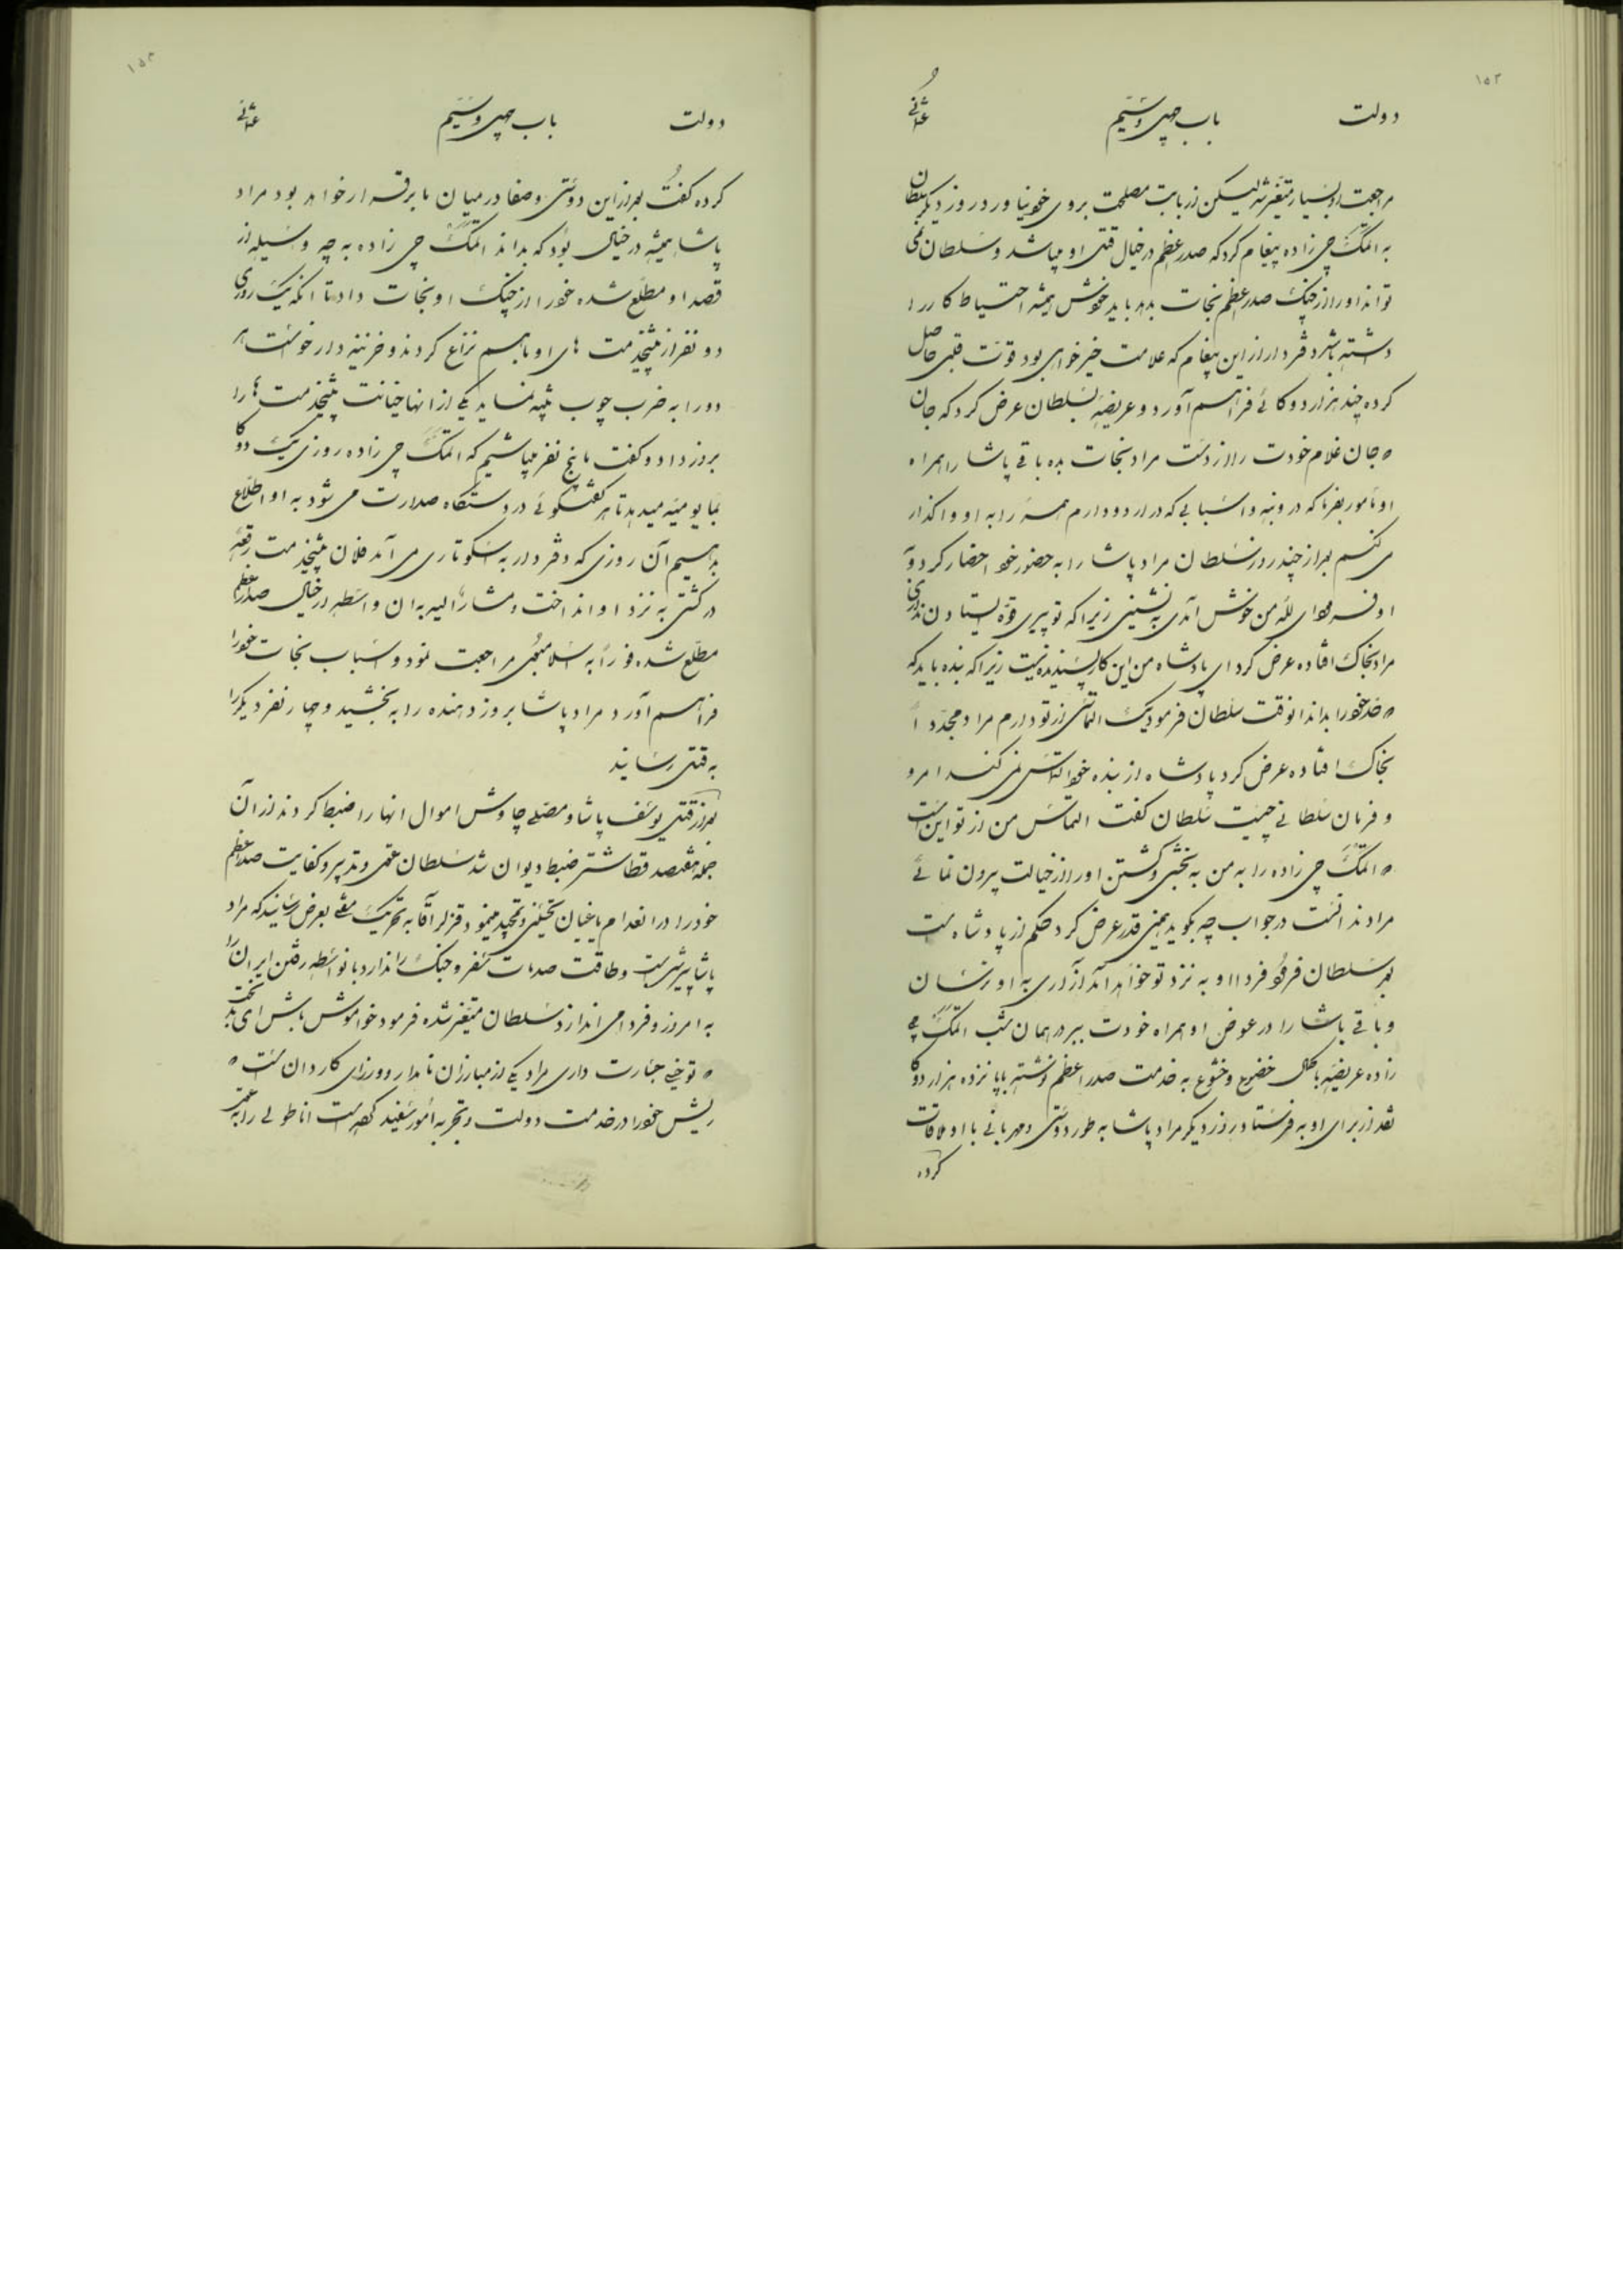 ۱۵۳
دولت باب چهل وششم عثمانی
مراجعت او بسیار متغیر شد لیکن از بابت مصلحت بروی خود نیاورد روز دیگر سلطان
به اتمک چی زاده پیغام کرد که صدر اعظم در خیال قتل او میباشد و سلطان نمی
تواند او را از چنگ صدر اعظم نجات بدهد باید خودش همیشه احتیاط کار را
داشته باشد دفتردار از این پیغام که علامت خیرخواهی بود قوت قلبی حاصل
کرده چند هزار دوکائی فراهم آورد و عریضه بسلطان عرض کرد که جان
جان غلام خودت را از دست مراد نجات بده باقی پاشا را همراه
او مامور بفرما که در وبنه و اسبابی که در اردو دارم همه را به او واگذار
می کنم بعد از چند روز سلطان مراد پاشا را به حضور خود احضار کرد و
او فرمود ای لله من خوش آمدی به نشینی زیرا که تو پیری قوه ایستادن نداری
مراد بخاک افتاده عرض کرد ای پادشاه من این کار پسندیده نیست زیرا که بنده باید که
حد خود را بداند انوقت سلطان فرمود یک التماسی از تو دارم مراد مجدداً
بخاک افتاده عرض کرد پادشاه از بنده خود التماس نمی کند امر و
و فرمان سلطانی چیست سلطان گفت التماس من از تو این است
که اتمک چی زاده را به من به بخشی و کشتن او را از خیالت بیرون نمائی
مراد ندانست در جواب چه بگوید همین قدر عرض کرد حکم از پادشاه است
بعد سلطان فرمود فردا او به نزد تو خواهد آمد آزاری به او نرسان
و باقی پاشا را در عوض او همراه خودت ببر در همان شب اتمک چی
زاده عریضه با کمال خضوع و خشوع به خدمت صدر اعظم نوشته با پانزده هزار دوکا
نقد از برای او به فرستاد روز دیگر مراد پاشا به طور دوستی و مهربانی با او ملاقات
کرده
۱۵۴
دولت باب چهل وششم عثمانی
کرده گفت بعد از این دوستی و صفا در میان ما برقرار خواهد بود مراد
پاشا همیشه در خیال بود که بداند اتمک چی زاده به چه وسیله از
قصد او مطلع شده خود را از چنگ او نجات داد تا انکه یک روزی
دو نفر از پیشخدمت های او باهم نزاع کردند و خزینه دار خواست هر
دو را به ضرب چوب تنبیه نماید یکی از انها خیانت پیشخدمت ها را
بروز داد و گفت ما پنج نفر میباشیم که اتمک چی زاده روزی یک دوکا
بما یومیه میدهد تا هر گفتگوئی در دستگاه صدارت می شود به او اطلاع
بدهیم آن روزی که دفتردار به اسکوتاری می آمد فلان پیشخدمت رقعه
در کشتی به نزد او انداخت و مشارالیه به ان واسطه از خیال صدر اعظم
مطلع شده فوراً به اسلامبول مراجعت نمود و اسباب نجات خود را
فراهم آورد مراد پاشا بروز دهنده را به بخشید و چهار نفر دیگر را
به قتل رسانید
بعد از قتل یوسف پاشا و مصلی چاوش اموال انها را ضبط کردند از آن
جمله هفتصد قطار شتر ضبط دیوان شد سلطان عقل و تدبیر و کفایت صدر اعظم
خود را در انعدام یاغیان تحسین و تمجید مینمود قزلر آقا به تحریک مفتی بعرض رسانید که مراد
پاشا پیر شده است و طاقت صدمات سفر و جنگ را ندارد با نواسطه رفتن ایران را
به امروز و فردا می اندازد سلطان متغیر شده فرمود خواموش باش ای بدبخت
تو خیلی جسارت داری مراد یکی از مبارزان نامدار و وزرای کاردان است که
ریش خود را در خدمت دولت و تجربه امور سفید کرده است اناطولی را به